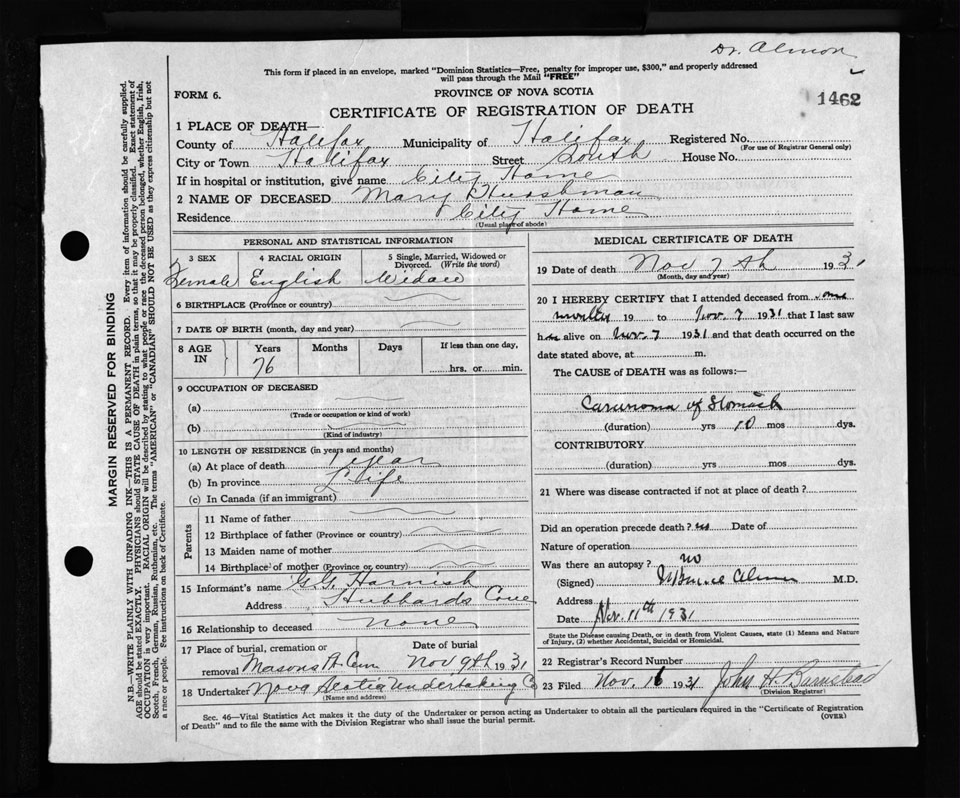 Dr. Almon
This form if placed in an envelope, marked "Dominion Statistics—Free, penalty for improper use, $300," and properly addressed
will pass through the Mail "FREE"
FORM 6.
PROVINCE OF NOVA SCOTIA
1462
CERTIFICATE OF REGISTRATION OF DEATH
1 PLACE OF DEATH—
County of Halifax Municipality of Halifax Registered No.
(For use of Registrar General only)
City or Town Halifax Street South House No.
If in hospital or institution, give name City Home
2 NAME OF DECEASED Mary
Residence City Home
(Usual place of abode)
PERSONAL AND STATISTICAL INFORMATION
3 SEX 4 RACIAL ORIGIN 5 Single, Married, Widowed or
Divorced. (Write the word)
Female English Widow
6 BIRTHPLACE (Province or country)
7 DATE OF BIRTH (month, day and year)
8 AGE IN Years Months Days If less than one day,
76 hrs. or min.
9 OCCUPATION OF DECEASED
(a)
(Trade or occupation or kind of work)
(b)
(Kind of industry)
10 LENGTH OF RESIDENCE (in years and months)
(a) At place of death 1 year
(b) In province Life
(c) In Canada (if an immigrant)
Parents
11 Name of father
12 Birthplace of father (Province or country)
13 Maiden name of mother
14 Birthplace of mother (Province or country)
15 Informant's name G.G. Harnish
Address Hubbards Cove
16 Relationship to deceased none
17 Place of burial, cremation or Date of burial
removal Masons H. Cem Nov 9th 1931
18 Undertaker Nova Scotia Undertaking Co
(Name and address)
MEDICAL CERTIFICATE OF DEATH
19 Date of death Nov 7th 1931
(Month, day and year)
20 I HEREBY CERTIFY that I attended deceased from
19 to Nov. 7 1931 that I last saw
her alive on Nov. 7 1931 and that death occurred on the
date stated above, at m.
The CAUSE of DEATH was as follows:—
Carcinoma of Stomach
(duration) yrs 10 mos dys.
CONTRIBUTORY
(duration) yrs mos dys.
21 Where was disease contracted if not at place of death?
Did an operation precede death? no Date of
Nature of operation
Was there an autopsy? no
(Signed) Almon M.D.
Address
Date Nov. 11th 1931
State the Disease causing Death, or in death from Violent Causes, state (1) Means and Nature
of Injury, (2) whether Accidental, Suicidal or Homicidal.
22 Registrar's Record Number
23 Filed Nov. 16 1931 John H. Barnstead
(Division Registrar)
Sec. 46—Vital Statistics Act makes it the duty of the Undertaker or person acting as Undertaker to obtain all the particulars required in the "Certificate of Registration
of Death" and to file the same with the Division Registrar who shall issue the burial permit.
(OVER)
MARGIN RESERVED FOR BINDING
N.B.—WRITE PLAINLY WITH UNFADING INK—THIS IS A PERMANENT RECORD. Every item of information should be carefully supplied.
AGE should be stated EXACTLY. PHYSICIANS should STATE CAUSE OF DEATH in plain terms, so that it may be properly classified. Exact statement of
OCCUPATION is very important. RACIAL ORIGIN will be described by stating to what people or race the deceased person belonged, whether English, Irish,
Scotch, French, German, Russian, Ruthenian, etc. The terms "AMERICAN" or "CANADIAN" SHOULD NOT BE USED as they express citizenship but not
a race or people. See instructions on back of Certificate.